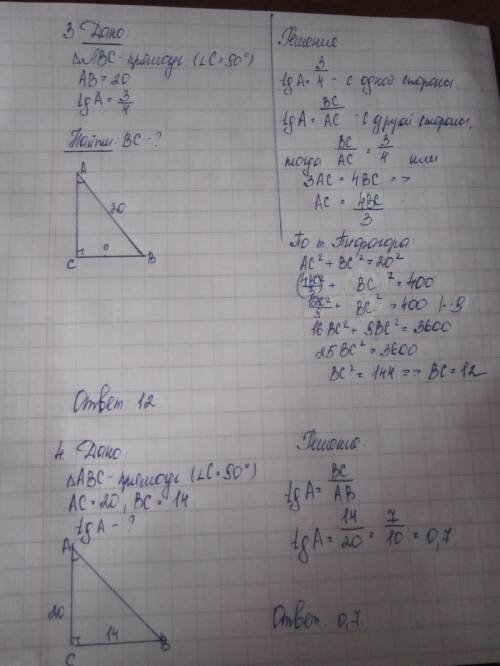 3 Дано:
△ABC - прямоуг (∠C=90°)
AB = 20
tgA = 3/4
Найти: BC - ?
A
20
?
C
B
Решение:
tgA = 3/4 - с одной стороны
tgA = BC/AC - с другой стороны,
тогда BC/AC = 3/4 или
3AC = 4BC =>
AC = 4BC/3
По т. Пифагора:
AC² + BC² = 20²
(4BC/3)² + BC² = 400
16BC²/9 + BC² = 400 |·9
16BC² + 9BC² = 3600
25BC² = 3600
BC² = 144 => BC = 12
Ответ 12
4. Дано:
△ABC - прямоуг (∠C=90°)
AC = 20, BC = 14
tgA - ?
A
20
14
C
B
Решение:
tgA = BC/AB
tgA = 14/20 = 7/10 = 0,7
Ответ: 0,7.